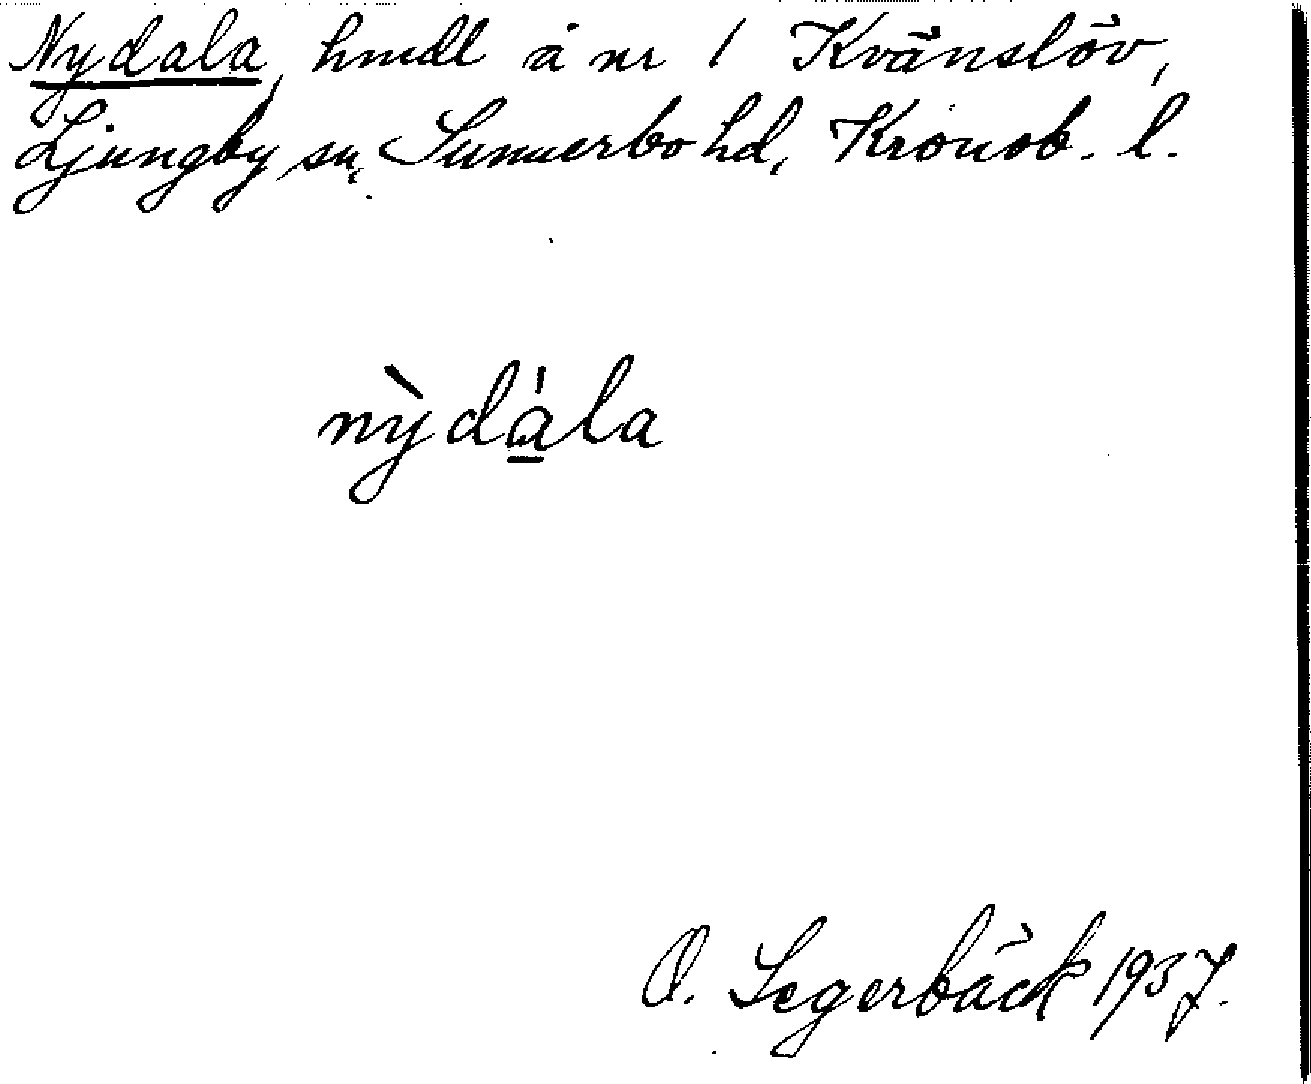 Nydala, hmdl å nr 1 Kvänslöv,
Ljungby sn, Sunnerbo hd, Kronob. l.
nỳda̲̍la
O. Segerbäck 1937.